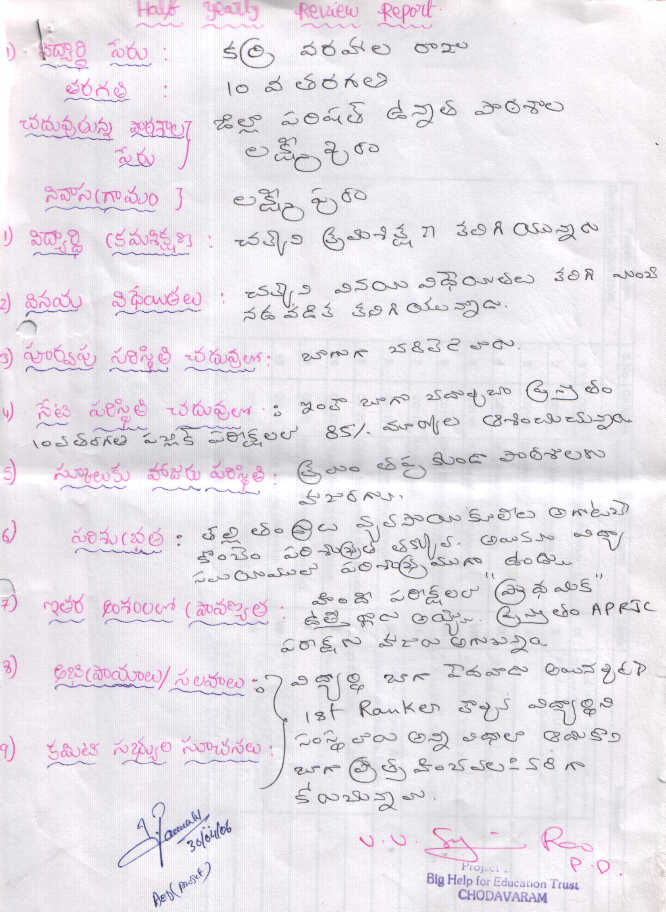 Half yearly Review Report
1) విద్యార్థి పేరు : కర్రి వరహాల రాజు
తరగతి : 10 వ తరగతి
చదువుచున్న పాఠశాల పేరు } జిల్లా పరిషత్ ఉన్నత పాఠశాల
లక్ష్మీపురం
నివాస గ్రామం } లక్ష్మీపురం
1) విద్యార్థి క్రమశిక్షణ : చక్కని క్రమశిక్షణ కలిగి యున్నాడు
2) వినయ విధేయతలు : చక్కని వినయ విధేయతలు కలిగి మంచి
నడవడిక కలిగియున్నాడు.
3) పూర్వపు పరిస్థితి చదువులో : బాగుగా చదివెడివాడు.
4) నేటి పరిస్థితి చదువులో : ఇంకా బాగా ప్రస్తుతం
10వ తరగతి పబ్లిక్ పరీక్షలలో 85% మార్కులు ఆశించుచున్నాడు
5) స్కూలుకు హాజరు పరిస్థితి : క్రమం తప్పకుండా పాఠశాలకు
హాజరగును.
6) పరిశుభ్రత : తల్లి తండ్రులు వ్యవసాయ కూలీలు అగుటచే
కొంచెం పరిశుభ్రత తక్కువ. అయినను విద్యా
సమయములో పరిశుభ్రముగా ఉండును.
7) ఇతర అంశాలలో ప్రావీణ్యత : హిందీ పరీక్షలలో "ప్రాథమిక్"
ఉత్తీర్ణుడు అయ్యెను. ప్రస్తుతం APRJC
పరీక్షకు హాజరు అగుచున్నాడు
8) అభిప్రాయాలు / సలహాలు : విద్యార్థి బాగా పేదవాడు అయినప్పటికీ
1st Ranker కావున విద్యార్థిని
9) కమిటి సభ్యుల సూచనలు : సంస్థ వారు అన్ని విధాలా
బాగా ప్రోత్సహించవలసినదిగా
కోరుచున్నాను.
30/04/06
V. V. Rao
P.D.
Project
Big Help for Education Trust
CHODAVARAM